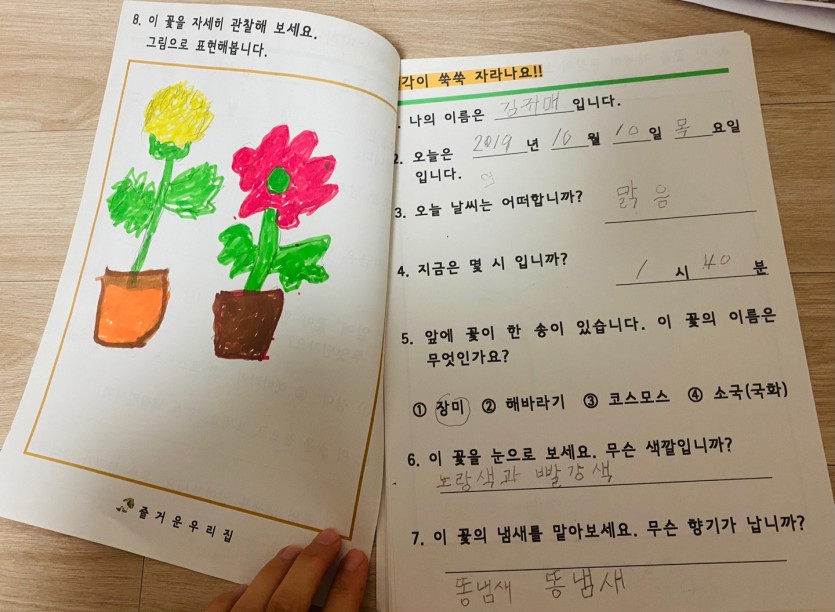 8. 이 꽃을 자세히 관찰해 보세요.
그림으로 표현해봅니다.
즐거운우리집
각이 쑥쑥 자라나요!!
. 나의 이름은 김자매 입니다.
2. 오늘은 2019 년 10 월 10 일 목 요일
입니다.
3. 오늘 날씨는 어떠합니까? 맑음
4. 지금은 몇 시 입니까? 1 시 40 분
5. 앞에 꽃이 한 송이 있습니다. 이 꽃의 이름은
무엇인가요?
① 장미 ② 해바라기 ③ 코스모스 ④ 소국(국화)
6. 이 꽃을 눈으로 보세요. 무슨 색깔입니까?
노랑색과 빨강색
7. 이 꽃의 냄새를 맡아보세요. 무슨 향기가 납니까?
똥냄새 똥냄새